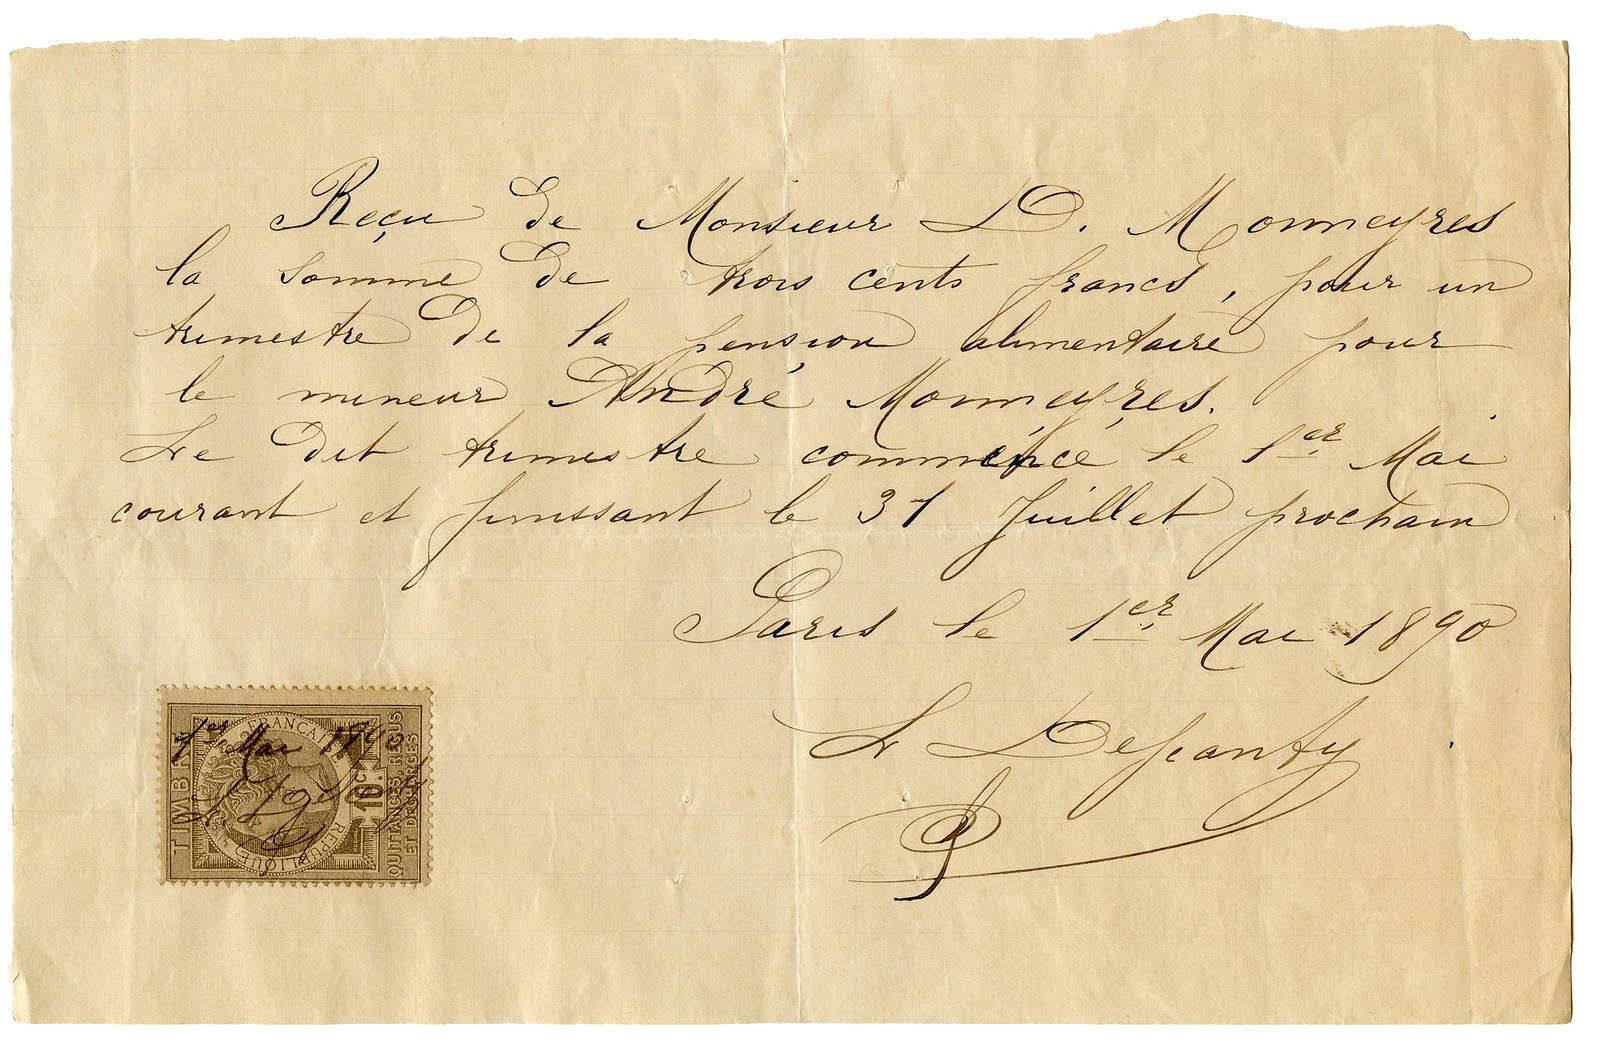 Reçu de Monsieur D. Monneyres
la somme de trois cents francs, pour un
trimestre de la pension alimentaire pour
le mineur André Monneyres.
Le dit trimestre commencé le 1er Mai
courant et finissant le 31 Juillet prochain
Paris le 1er Mai 1890
TIMBRE
RÉPUBLIQUE FRANÇAISE
10c
QUITTANCES, REÇUS
ET DÉCHARGES
1er Mai 1890